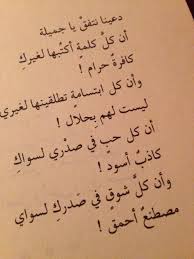 دعينا نتفقْ يا جميلة
أن كلَّ كلمةٍ أكتبُها لغيركِ
كافرةٌ حرام !
وأن كل ابتسامةٍ تطلقينها لغيري
ليست لهم بِحلال !
أن كلَّ حبٍ في صدْري لسواكِ
كاذبٌ أسود !
وأن كلَّ شوقٍ في صَدركِ لسواي
مصطنعٌ أحمق !